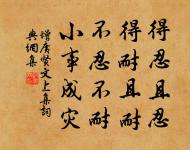 得忍且忍
得耐且耐
不忍不耐
小事成灾
增广贤文上集词
典网集